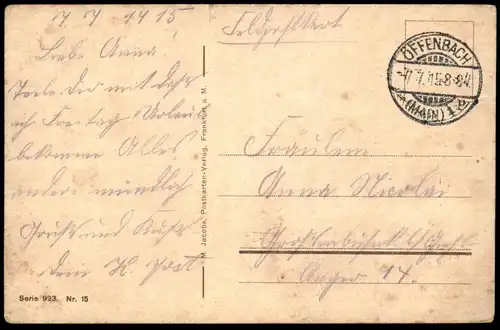 7. 7 1915
Liebe Anna!
Teile dir mit daß
ich Freitag Urlaub
bekomme Alles
andere mündlich
Gruß und Kuß
dein H.
Serie 923. Nr. 15
M. Jacobs, Postkarten-Verlag, Frankfurt a. M.
Feldpostkart
OFFENBACH
-7.7.15.8-9V.
(MAIN) 1
Fräulein
Anna Nicolai
14.